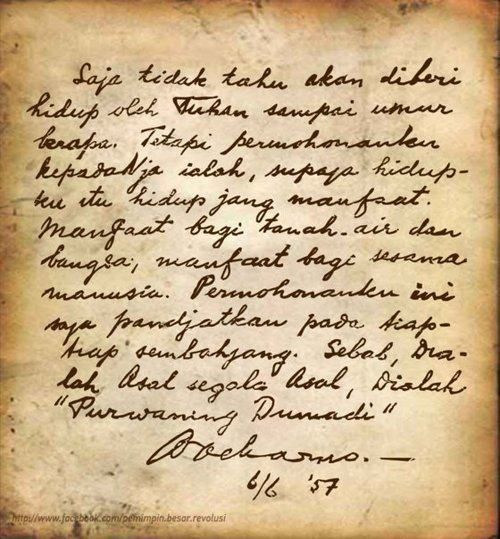 Saja tidak tahu akan diberi
hidup oleh Tuhan sampai umur
berapa. Tetapi permohonanku
kepadaNja ialah, supaja hidup-
ku itu hidup jang manfaat.
Manfaat bagi tanah-air dan
bangsa, manfaat bagi sesama
manusia. Permohonanku ini
saja pandjatkan pada tiap-
tiap sembahjang. Sebab, Dia-
lah Asal segala Asal, Dialah
"Purwaning Dumadi"
Soekarno.—
6/6 '57
http://www.facebook.com/pemimpin.besar.revolusi